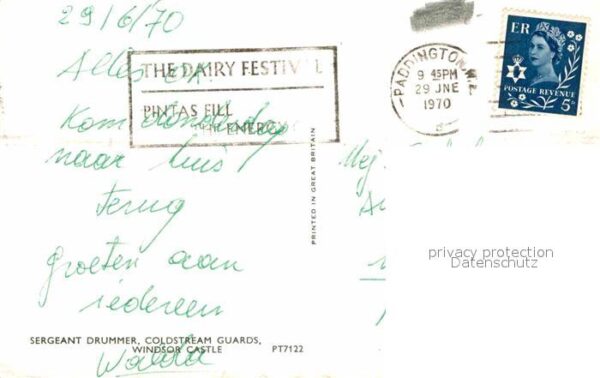 29/6/70
THE DAIRY FESTIVAL
PINTAS FILL
ENERGY
PADDINGTON
9 45PM
29 JNE
1970
ER
POSTAGE REVENUE
5D
Alles
Kom donderdag
naar huis
terug
groeten aan
iedereen
Walda
PRINTED IN GREAT BRITAIN
Mej.
privacy protection
Datenschutz
SERGEANT DRUMMER, COLDSTREAM GUARDS,
WINDSOR CASTLE PT7122